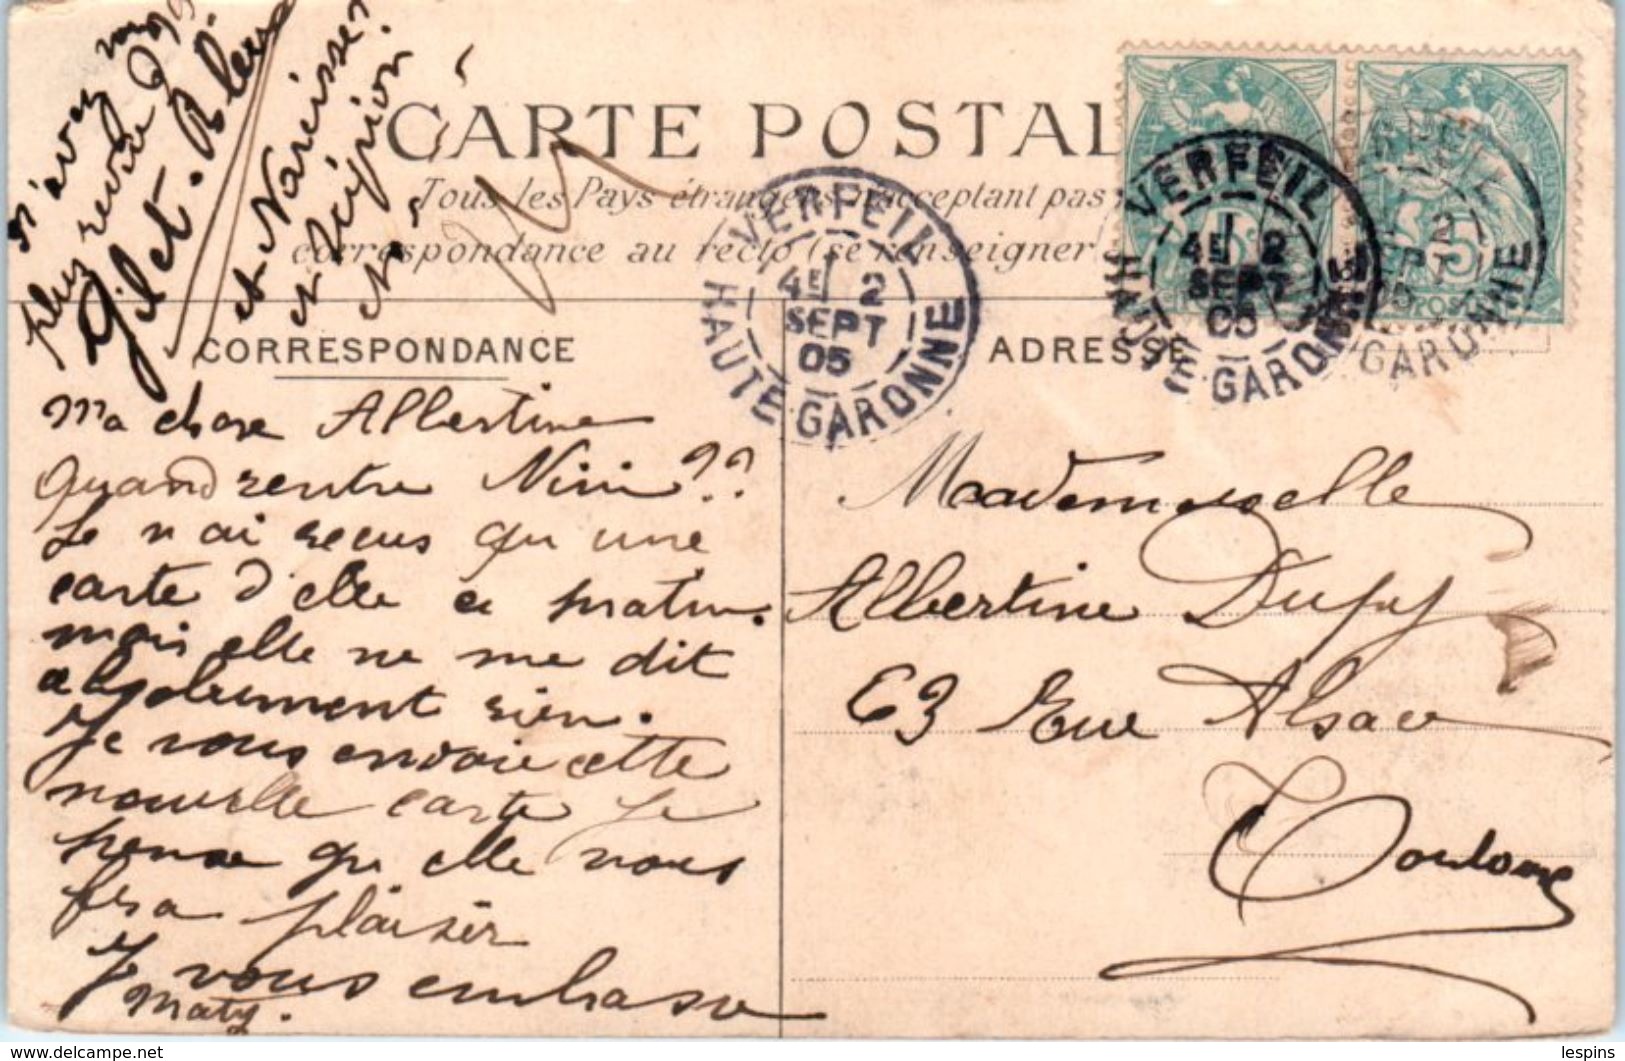 n'avez vous
plus revue
Gilet.
et Narcisse?
CARTE POSTAL
Tous les Pays étrangers n'acceptant pas
correspondance au recto (se renseigner
VERFEIL
4E 2
SEPT
05
HAUTE GARONNE
VERFEIL
4E 2
SEPT
05
HAUTE GARONNE
2
SEPT
05
GARONNE
CORRESPONDANCE
Ma chere Albertine
Quand rentre Nini??
Je n ai recus qu une
carte d'elle ce matin.
mais elle ne me dit
absolument rien.
Je vous envoie cette
nouvelle carte Je
pense qu elle vous
fera plaisir
Je vous embrasse
Maty.
ADRESSE
Mademoiselle
Albertine Dupuy
63 Rue Alsace
Toulouse
lespins